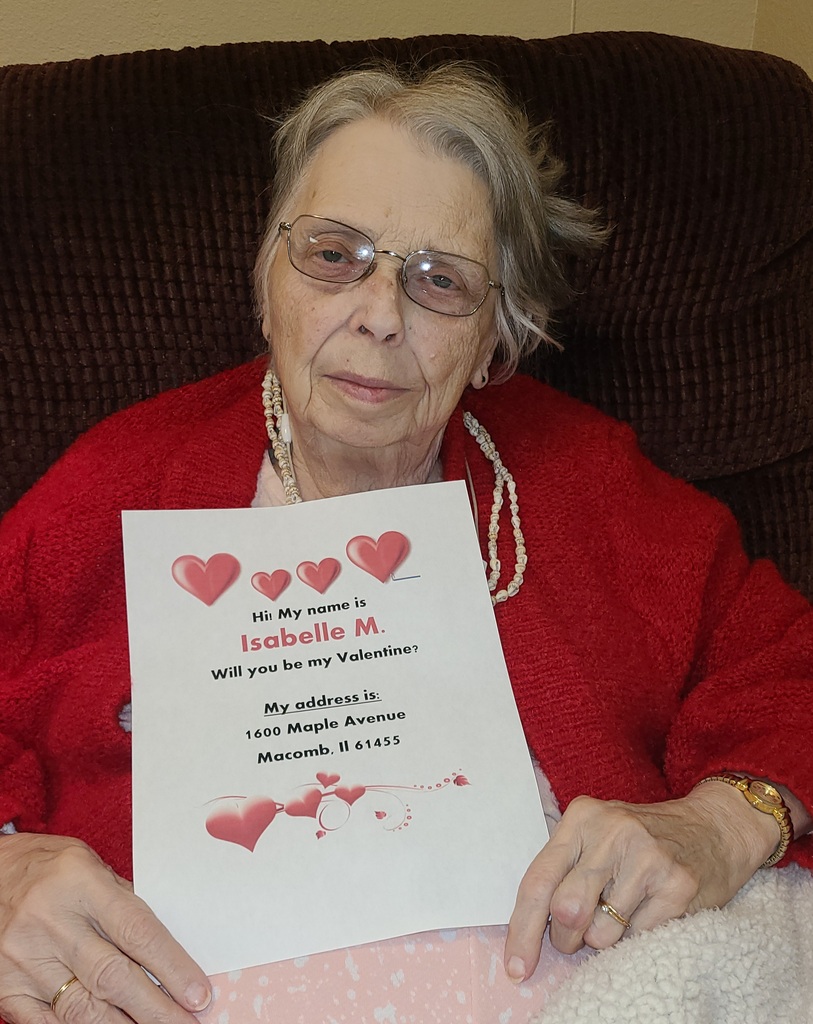 Hi! My name is
Isabelle M.
Will you be my Valentine?
My address is:
1600 Maple Avenue
Macomb, Il 61455